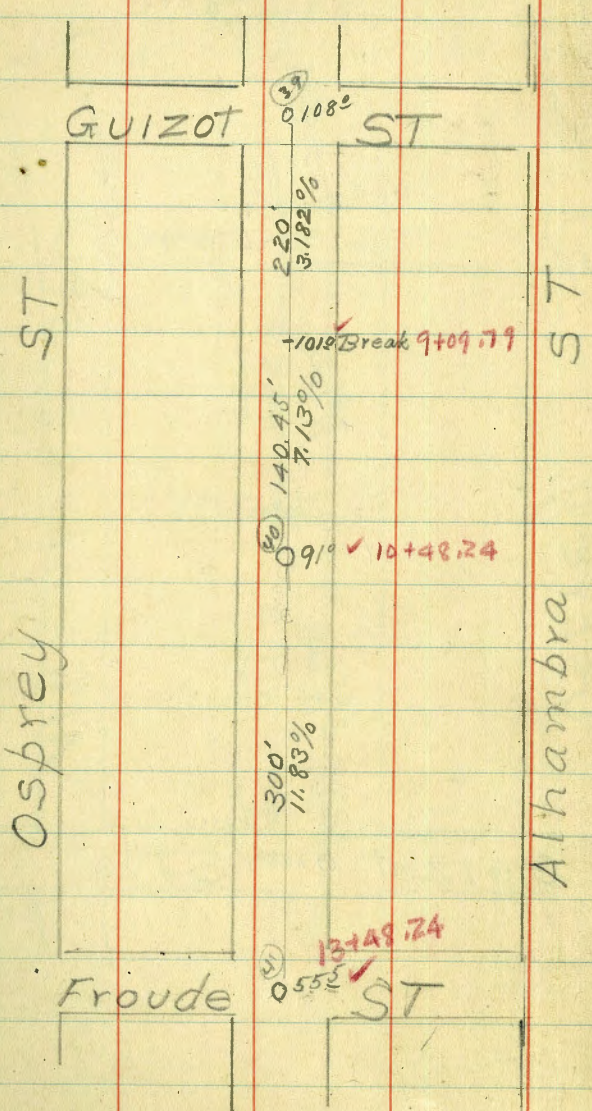 39
108⁰
GUIZOT ST
220'
3.182%
101⁰ Break 9+09.79
140.45'
7.13%
40
91⁰ ✓ 10+48.24
300'
11.83%
13+48.24
41
55⁵ ✓
Froude ST
Osprey ST
Alhambra ST